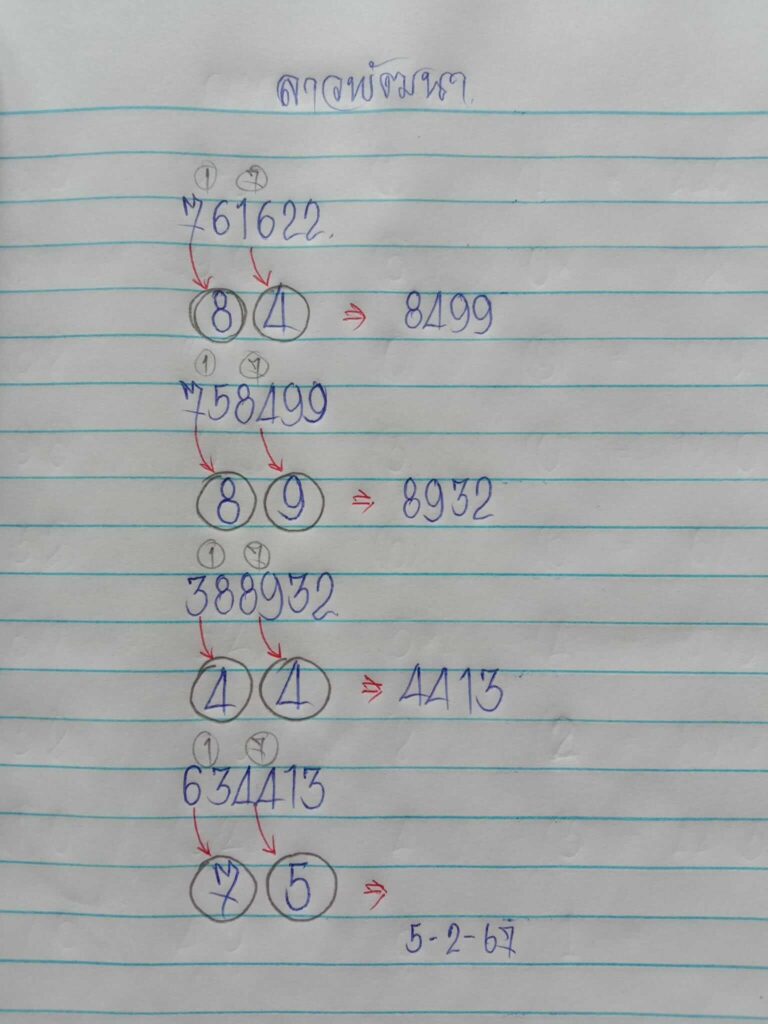 ลาวพัฒนา
1 7
761622.
8 4 ⇒ 8499
1 7
758499
8 9 ⇒ 8932
1 7
388932
4 4 ⇒ 4413
1 7
634413
7 5 ⇒
5-2-67